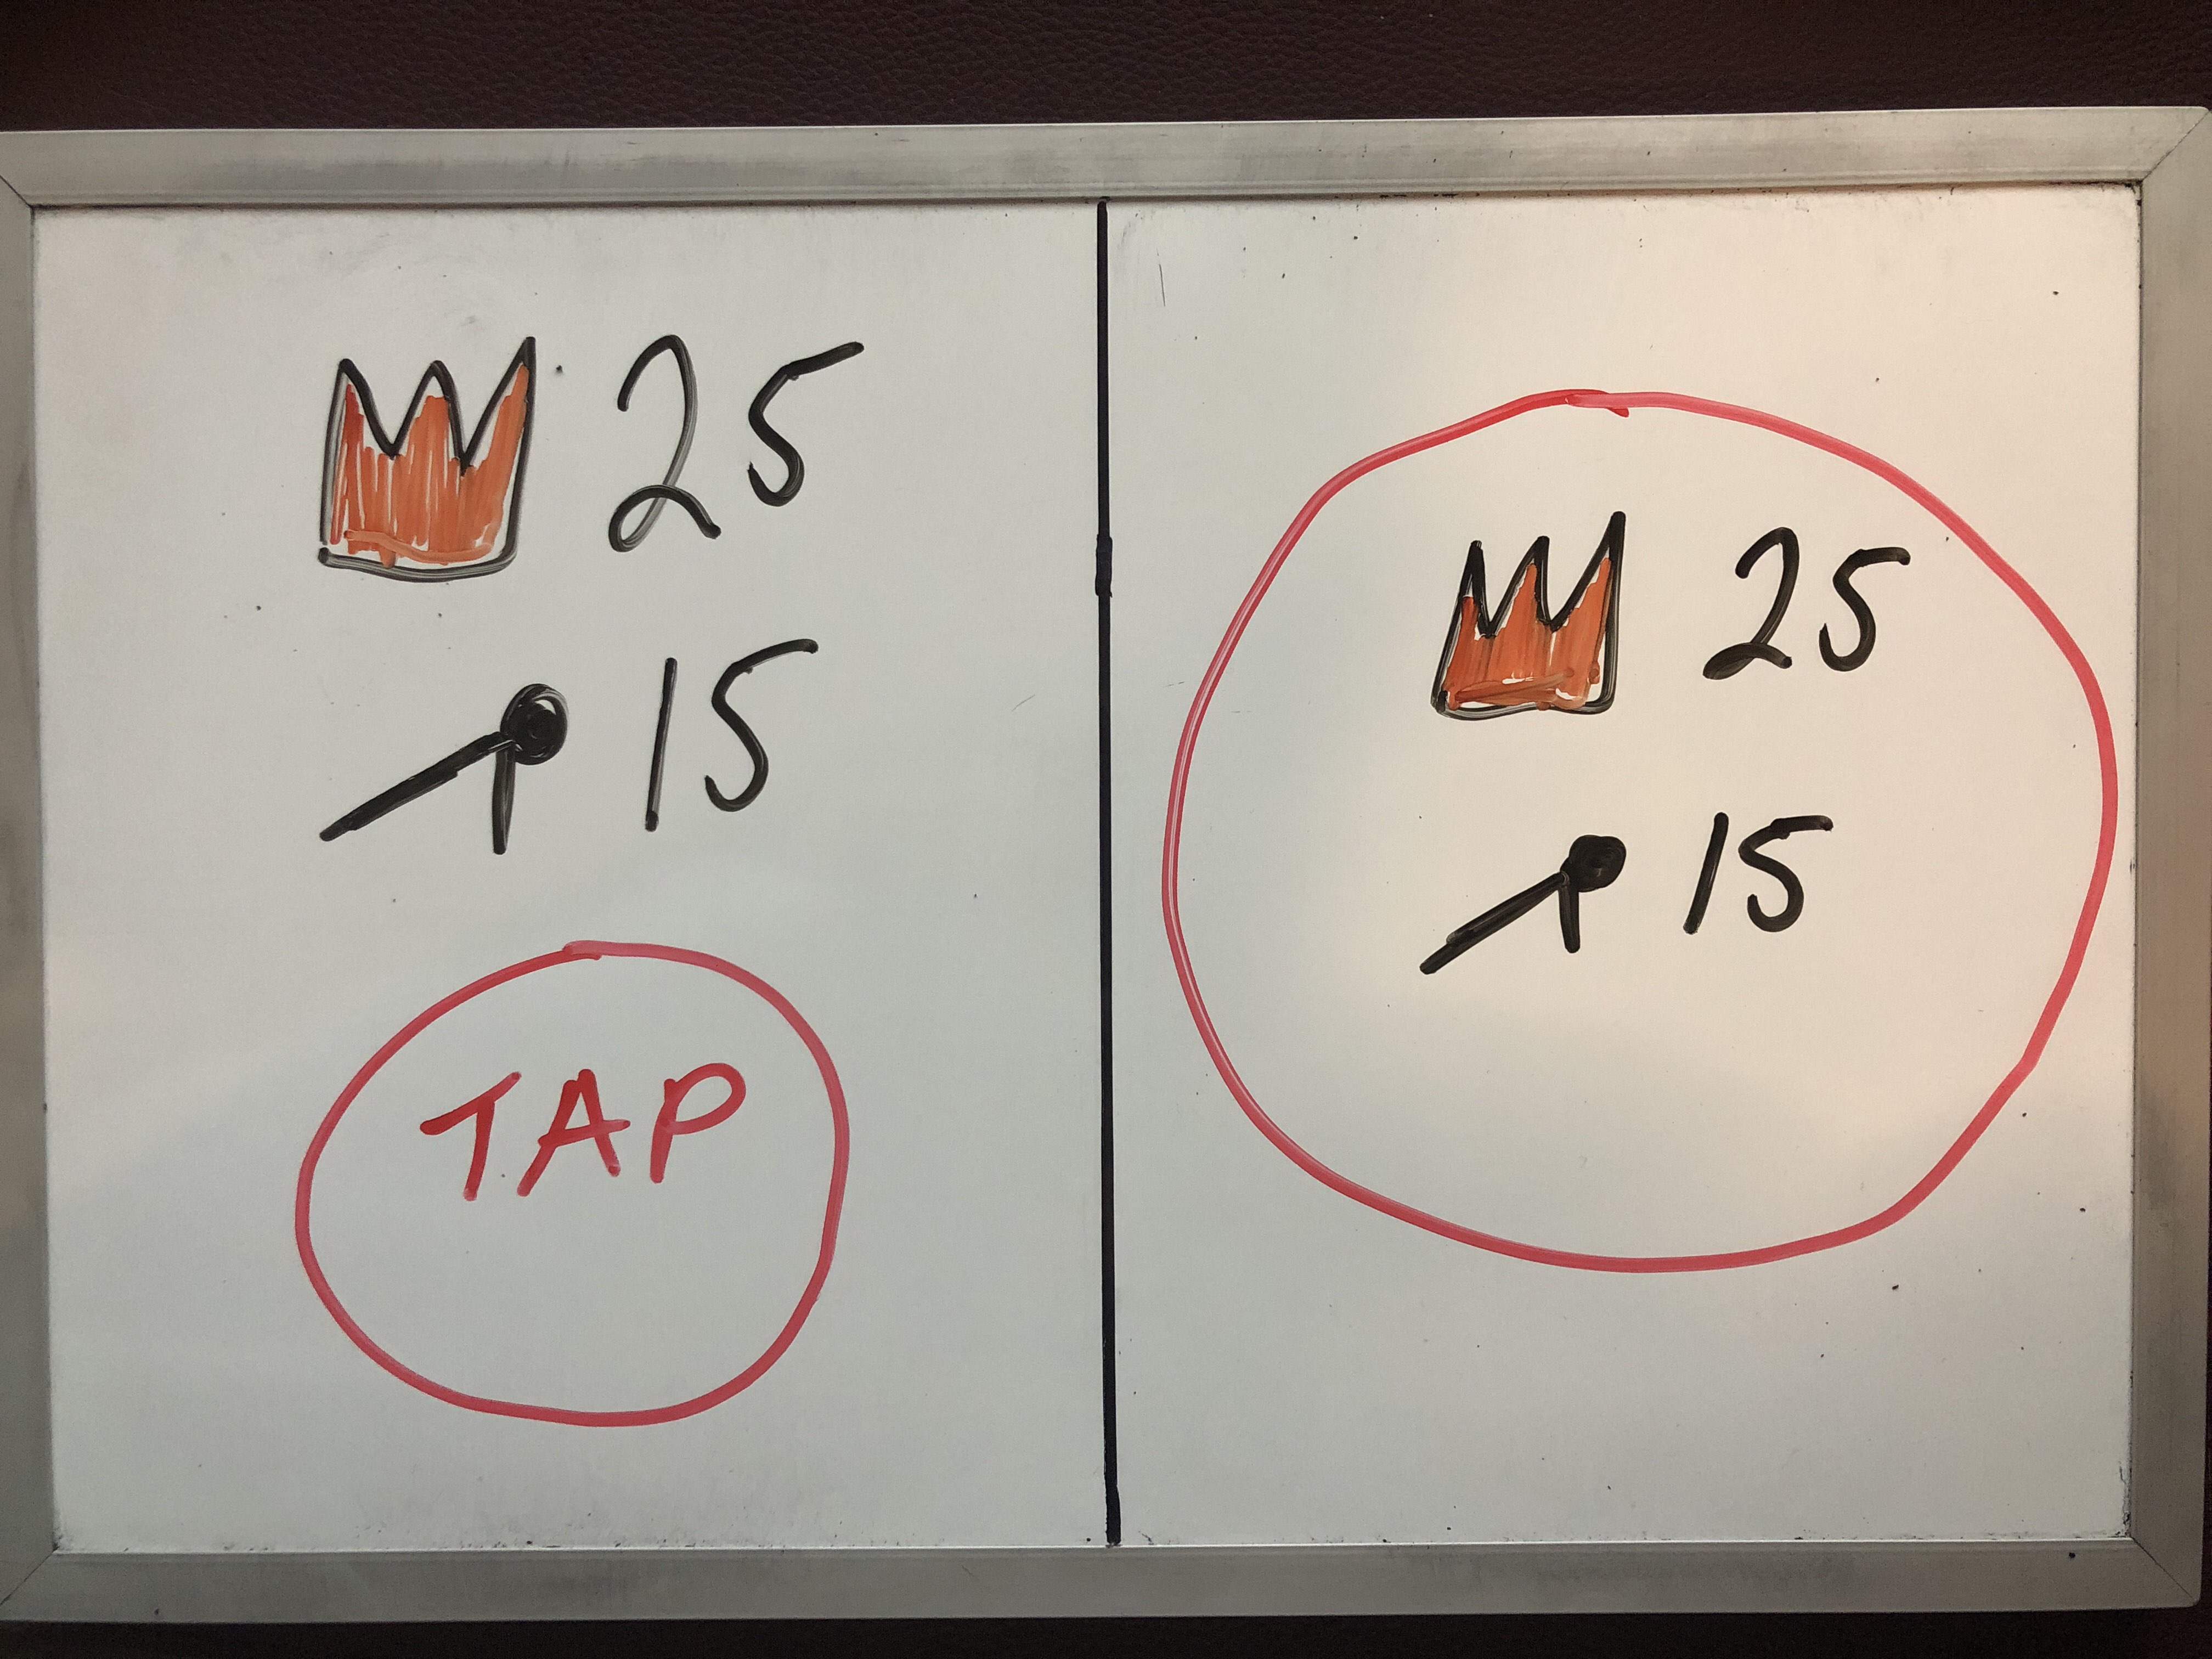 25
15
TAP
25
15